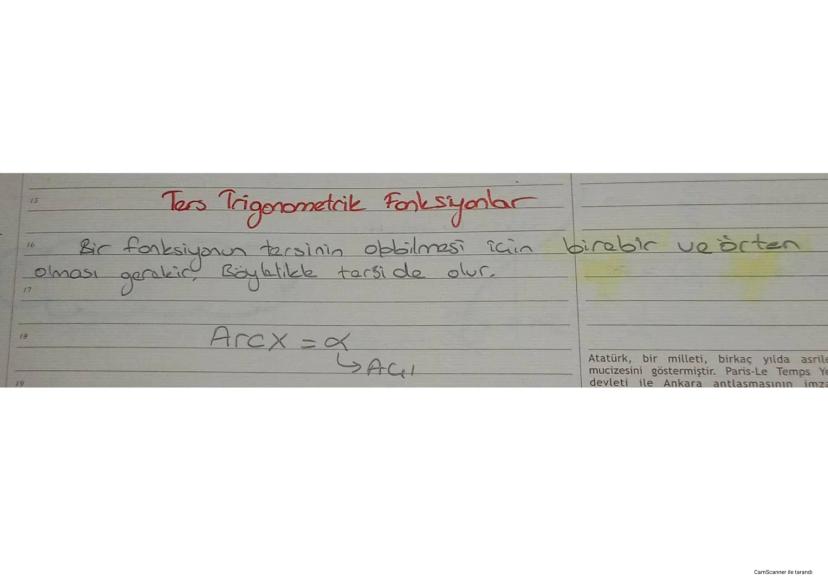 15
Ters Trigonometrik Fonksiyonlar
16
Bir fonksiyonun tersinin olabilmesi için birebir ve örten
olması gerekir. Böylelikle terside olur.
17
18
Arcx = α
↳ Açı
19
Atatürk, bir milleti, birkaç yılda asrile
mucizesini göstermiştir. Paris-Le Temps Ye
devleti ile Ankara antlaşmasının imza
CamScanner ile tarandı